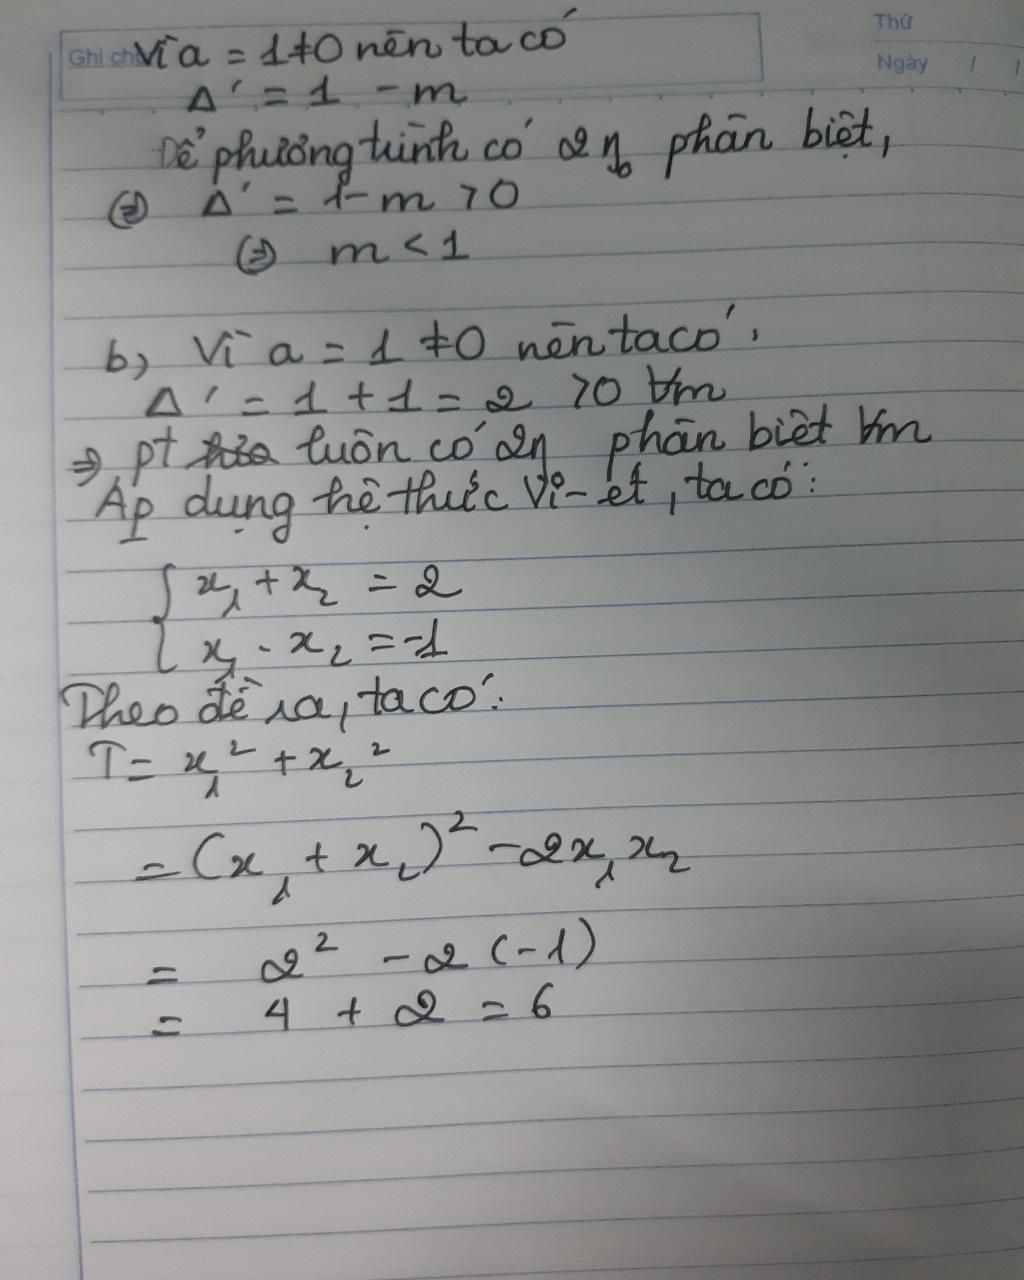 Ghi chú
Thứ
Ngày / /
Vì a = 1 ≠ 0 nên ta có
Δ' = 1 - m
Để phương trình có 2 n₀ phân biệt,
⇔ Δ' = 1 - m > 0
⇔ m < 1
b, Vì a = 1 ≠ 0 nên ta có.
Δ' = 1 + 1 = 2 > 0 ∀m
⇒ pt luôn có 2n phân biệt ∀m
Áp dụng hệ thức Vi-ét, ta có:
x₁ + x₂ = 2
x₁ . x₂ = -1
Theo đề ra, ta có:
T = x₁² + x₂²
= (x₁ + x₂)² - 2x₁x₂
= 2² - 2 (-1)
= 4 + 2 = 6